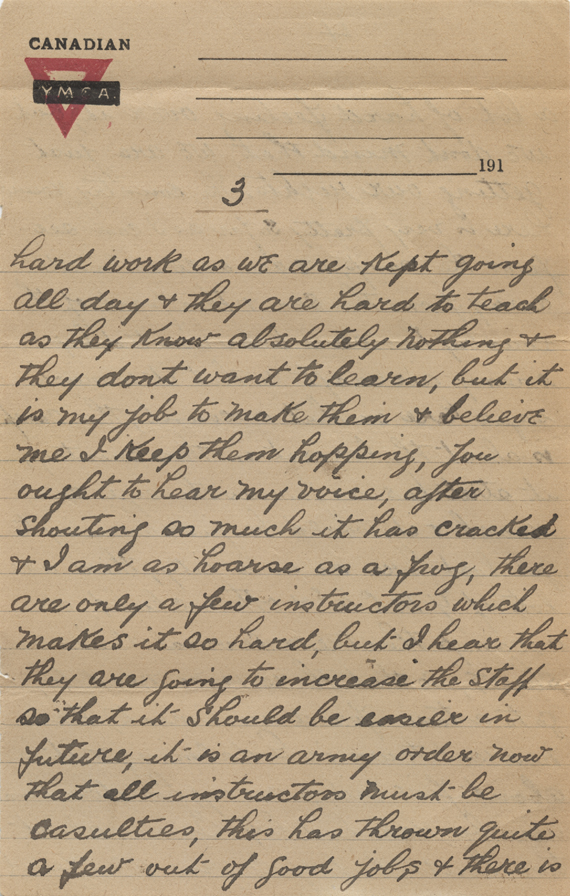 CANADIAN
YMCA
191
3
hard work as we are kept going
all day & they are hard to teach
as they know absolutely nothing &
they dont want to learn, but it
is my job to make them & believe
me I keep them hopping, you
ought to hear my voice, after
shouting so much it has cracked
& I am as hoarse as a frog, there
are only a few instructors which
makes it so hard, but I hear that
they are going to increase the staff
so that it should be easier in
future, it is an army order now
that all instructors must be
casulties, this has thrown quite
a few out of good jobs & there is